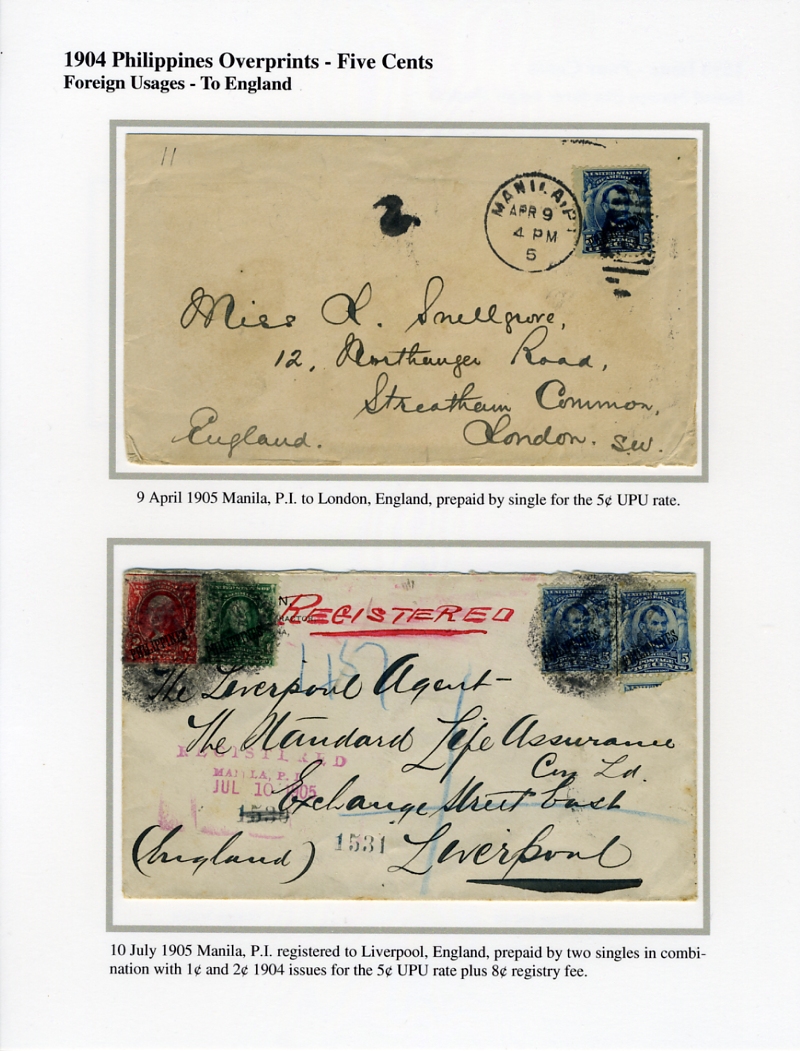 1904 Philippines Overprints - Five Cents
Foreign Usages - To England
11
MANILA, P.I.
APR 9
4 PM
5
UNITED STATES
5 CENTS 5
Miss L. Snellgrove,
12, Northanger Road,
Streatham Common,
England.
London. S.W.
9 April 1905 Manila, P.I. to London, England, prepaid by single for the 5¢ UPU rate.
REGISTERED
PHILIPPINES
PHILIPPINES
PHILIPPINES
PHILIPPINES
POSTAGE
5 FIVE CENTS 5
1157
The Liverpool Agent-
The Standard Life Assurance
Coy Ld.
REGISTERED
MANILA, P.I.
JUL 10 1905
Exchange Street East
1531
(England)
Liverpool
10 July 1905 Manila, P.I. registered to Liverpool, England, prepaid by two singles in combi-
nation with 1¢ and 2¢ 1904 issues for the 5¢ UPU rate plus 8¢ registry fee.